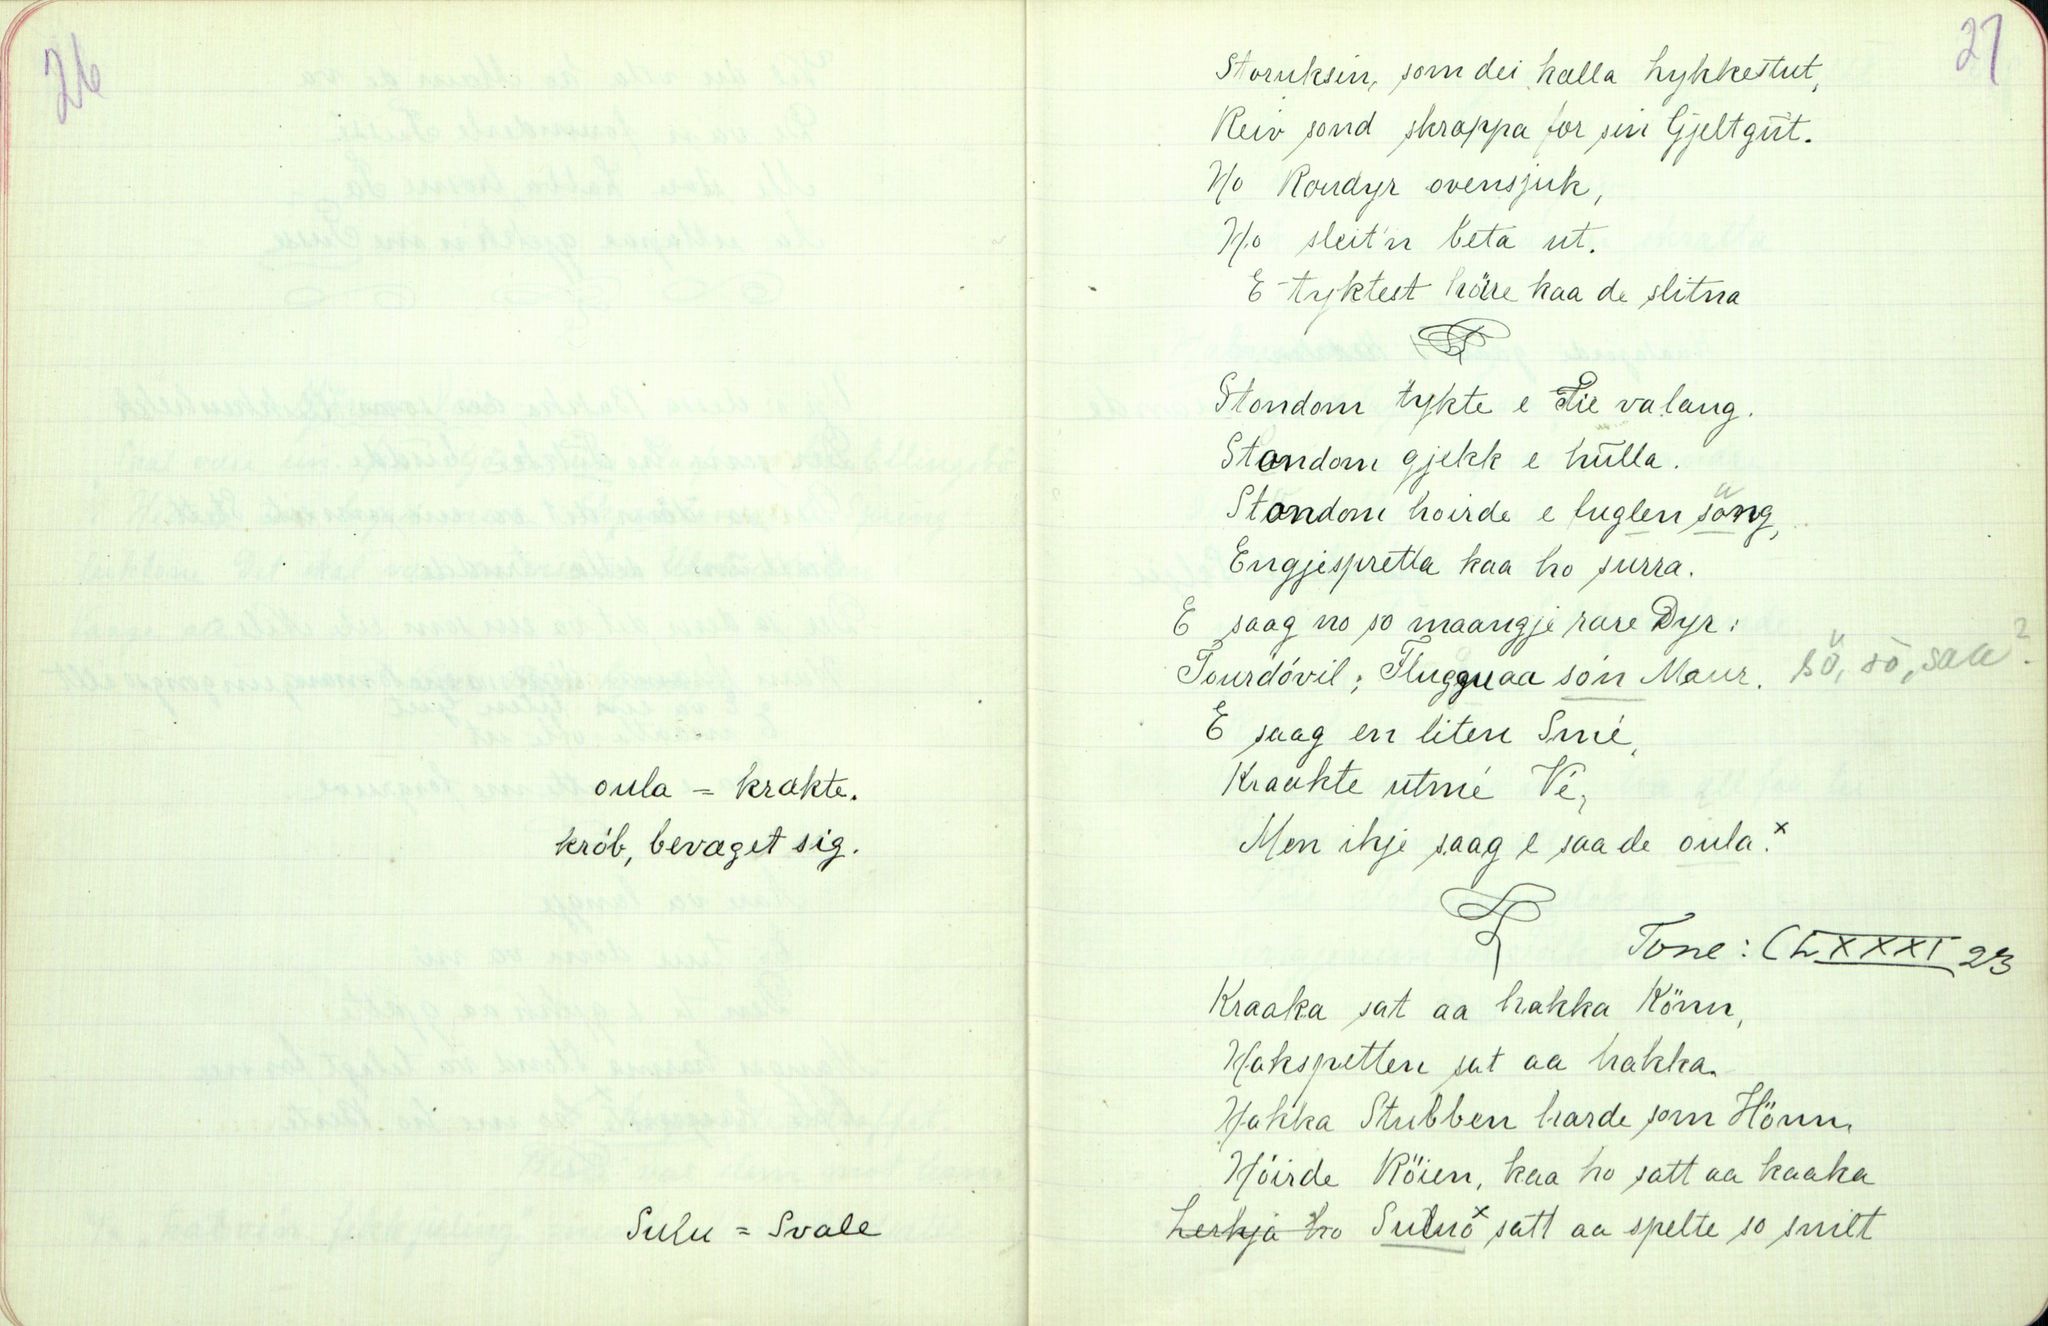 26
oula = krakte.
krób, bevæget sig.
Sulu = Svale
27
Storuksin, som dei kalla hykkestut,
Reiv sond skrappa for sin Gjeltgut.
Ho Roudyr ovensjuk,
Ho sleit'n beta ut.
E tyktest höire kaa de slitna
Stondom tykte e Tie va lang.
Stondom gjekk e hulla.
Stondom hoirde e fuglen söng,
Engjespretta kaa ho surra.
E saag no so maangje rare Dyr:
Tourdóvil; Flugguaa són Maur. sö, sò, saa?
E saag en liten Smé,
Kraakte utmé Vé,
Men ikje saag e saa de oula.x
Tone: CLXXXI 23
Kraaka sat aa hakka Könn,
Hakspetten sat aa hakka.
Hakka Stubben harde som Hönn.
Höirde Röien, kaa ho satt aa kaaka
Lerkja ho x satt aa spelte so snilt